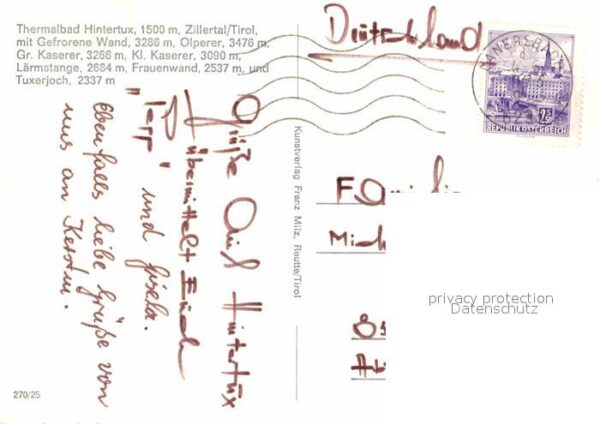 Thermalbad Hintertux, 1500 m, Zillertal/Tirol,
mit Gefrorene Wand, 3286 m, Olperer, 3476 m,
Gr. Kaserer, 3266 m, Kl. Kaserer, 3090 m,
Lärmstange, 2684 m, Frauenwand, 2537 m, und
Tuxerjoch, 2337 m
Grüße aus Hintertux
übermittelt Euch
"Pepp" und Gisela.
Ebenfalls liebe Grüße von
uns an Kerstin.
270/25
Kunstverlag Franz Milz, Reutte/Tirol
Deutschland
2.50
REPUBLIK ÖSTERREICH
Mich
privacy protection
Datenschutz